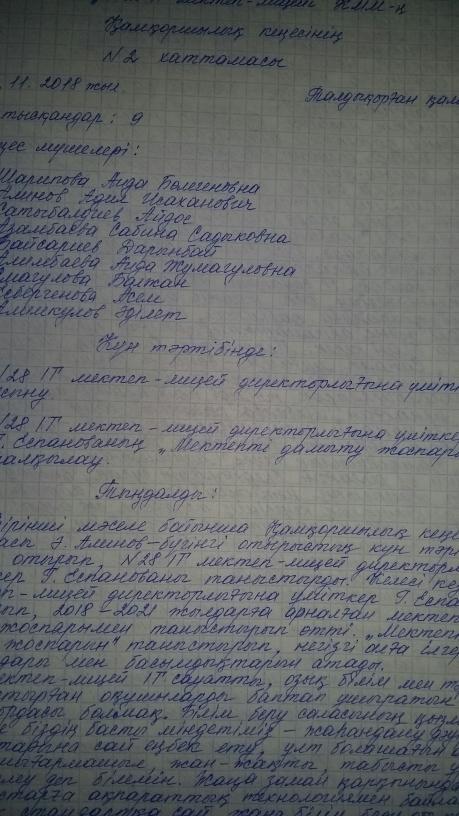 мектеп-лицей КММ-ң
Қамқоршылық кеңесінің
N2 хаттамасы
11. 2018 жыл. Талдықорған қал
тысқандар: 9
ңес мүшелері:
Шарипова Аида Болегеновна
Аминов Адил Исаханович
Сатыбалдиев Айдос
Сабина Садыковна
Байсариев Дарынбай
Аида Жумагуловна
магулова Балжан
Әсем
Әділет
Күн тәртібінде:
28 IT мектеп-лицей директорлығына үміт
28 IT мектеп-лицей директорлығына үміткер
Г. Еспанованың „Мектепті дамыту жоспары
алқылау.
Тыңдалды:
Бірінші мәселе бойынша Қамқоршылық кеңе
асы Ә. Аминов-бүгінгі отырыстың күн тәр
отырып, N28 IT мектеп-лицей директорл
ер Г. Еспанованы таныстырды. Келесі ке
п-лицей директорлығына үміткер Г. Еспа
ып, 2018-2021 жылдарға арналған мектеп
жоспарымен таныстырып өтті. „Мектепт
жоспарын" таныстырып, негізгі алға ілгер
дары мен басымдықтарын атады.
ектеп-лицей IT сауатты, озық білім мен т
стырған оқушыларды баптап ұшыратын
ордасы, болмақ. Білім беру саласының қызм
біздің басты міндетіміз - жаһандану
тарына сай еңбек ету, ұлт болашағын
шығармашыл, жан-жақты, табысты
леу деп білемін. Жаңа заман қарқынынд
старға ақпараттық технологиямен байла
стандартқа сай, жаңа білім беру